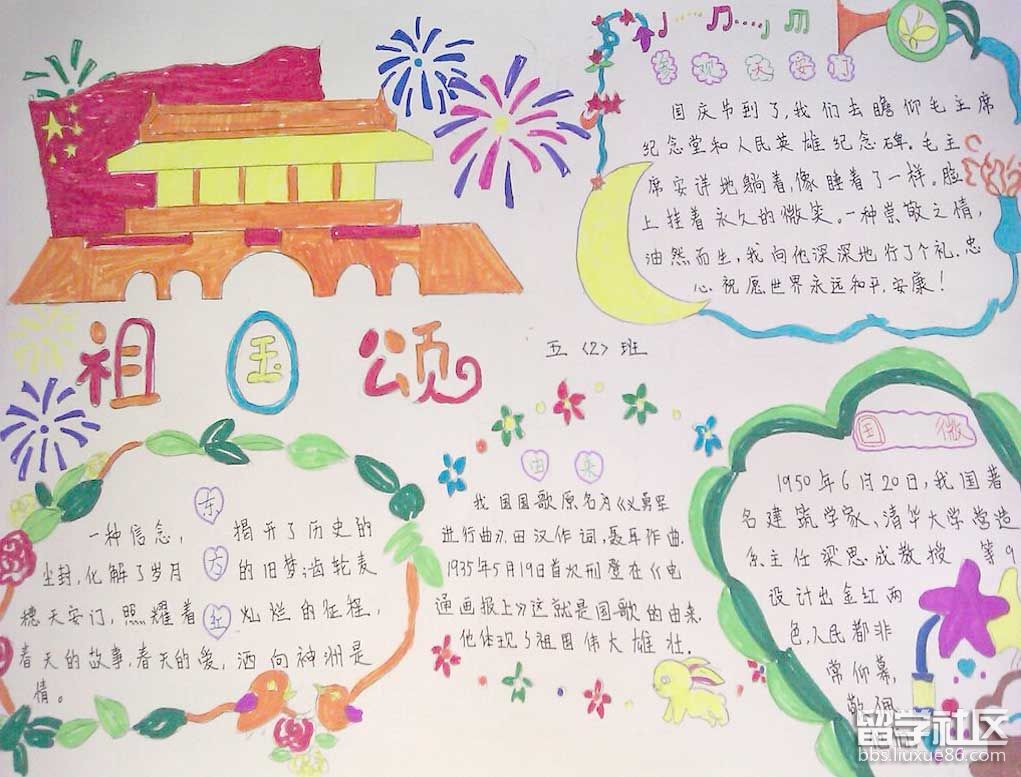 参观天安门
国庆节到了,我们去瞻仰毛主席
纪念堂和人民英雄纪念碑。毛主
席安详地躺着,像睡着了一样。脸
上挂着永久的微笑。一种崇敬之情,
油然而生,我向他深深地行了个礼.忠
心祝愿世界永远和平,安康!
祖国颂
五〈2〉班
东方红
一种信念,揭开了历史的
尘封,化解了岁月的旧梦;齿轮麦
穗天安门,照耀着灿烂的征程,
春天的故事,春天的爱,洒向神洲是
情。
由来
我国国歌原名为《义勇军
进行曲》,田汉作词,聂耳作曲.
1935年5月19日首次刊登在《电
通画报上》这就是国歌的由来.
他体现了祖国伟大雄壮.
国 微
1950年6月20日,我国著
名建筑学家、清华大学营造
系主任梁思成教授等9
设计出金红两
色,人民都非
常仰慕,
敬佩
留学社区
bbs.liuxue86.com